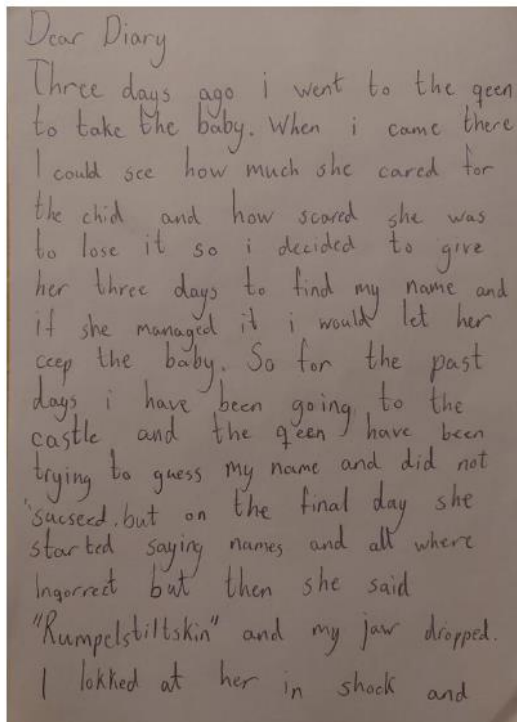 Dear Diary
Three days ago i went to the qeen
to take the baby. When i came there
I could see how much she cared for
the chid and how scared she was
to lose it so i decided to give
her three days to find my name and
if she managed it i would let her
ceep the baby. So for the past
days i have been going to the
castle and the qeen have been
trying to guess my name and did not
sucseed. but on the final day she
started saying names and all where
Ingorrect but then she said
"Rumpelstiltskin" and my jaw dropped.
I lokked at her in shock and